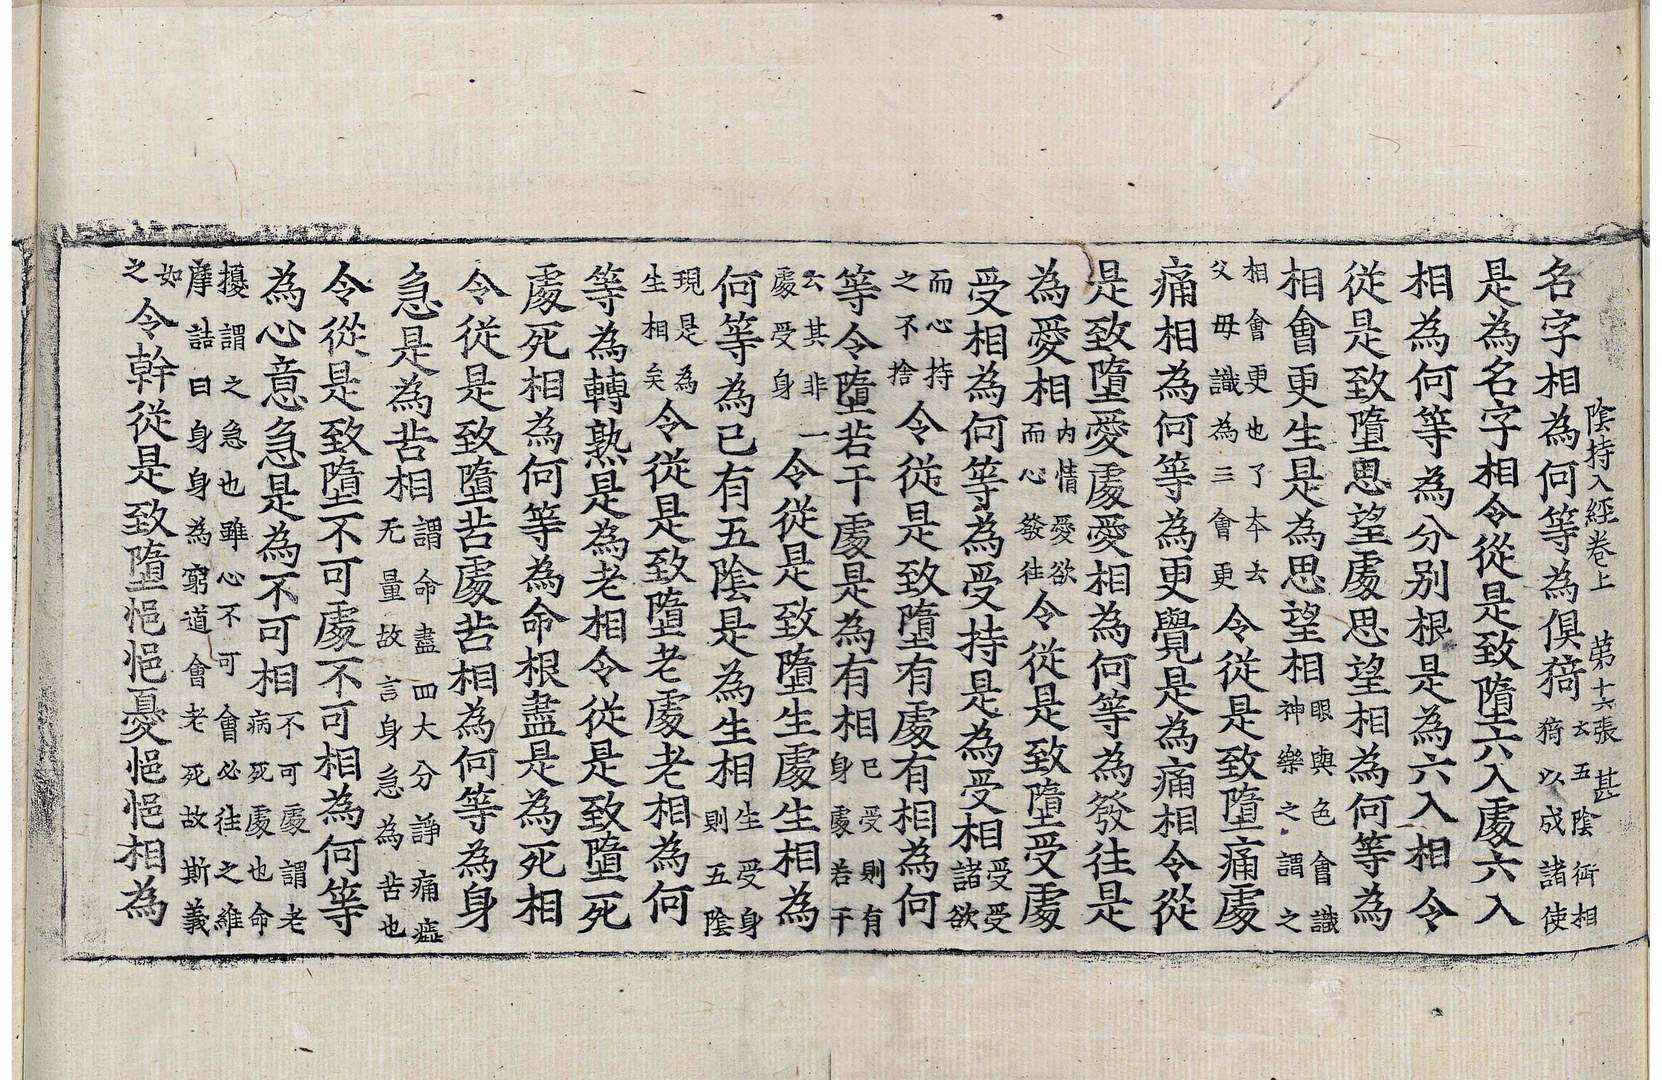 陰持入經卷上 第十六張 甚
名字相為何等為俱猗云五陰相猗以成諸使
是為名字相令從是致墮六入處六入
相為何等為分別根是為六入相令
從是致墮思望處思望相為何等為
相會更生是為思望相眼與色會識神樂之謂之
相會更也了本去父母識為三會更令從是致墮痛處
痛相為何等為更覺是為痛相令從
是致墮愛處愛相為何等為發往是
為愛相內情愛欲而心發往令從是致墮受處
受相為何等為受持是為受相受受諸欲
而心持之不捨令從是致墮有處有相為何
等令墮若干處是為有相已受則有身處若干
云其非一處受身令從是致墮生處生相為
何等為已有五陰是為生相生受身則五陰
現是為生相矣令從是致墮老處老相為何
等為轉熟是為老相令從是致墮死
處死相為何等為命根盡是為死相
令從是致墮苦處苦相為何等為身
急是為苦相謂命盡四大分諍痛无量故言身急為苦也
令從是致墮不可處不可相為何等
為心意急是為不可相不可處謂老病死處也命
擾謂之急也雖心不可會必往之維摩詰曰身身為窮道會老死故斯義
如之令幹從是致墮悒悒憂悒悒相為